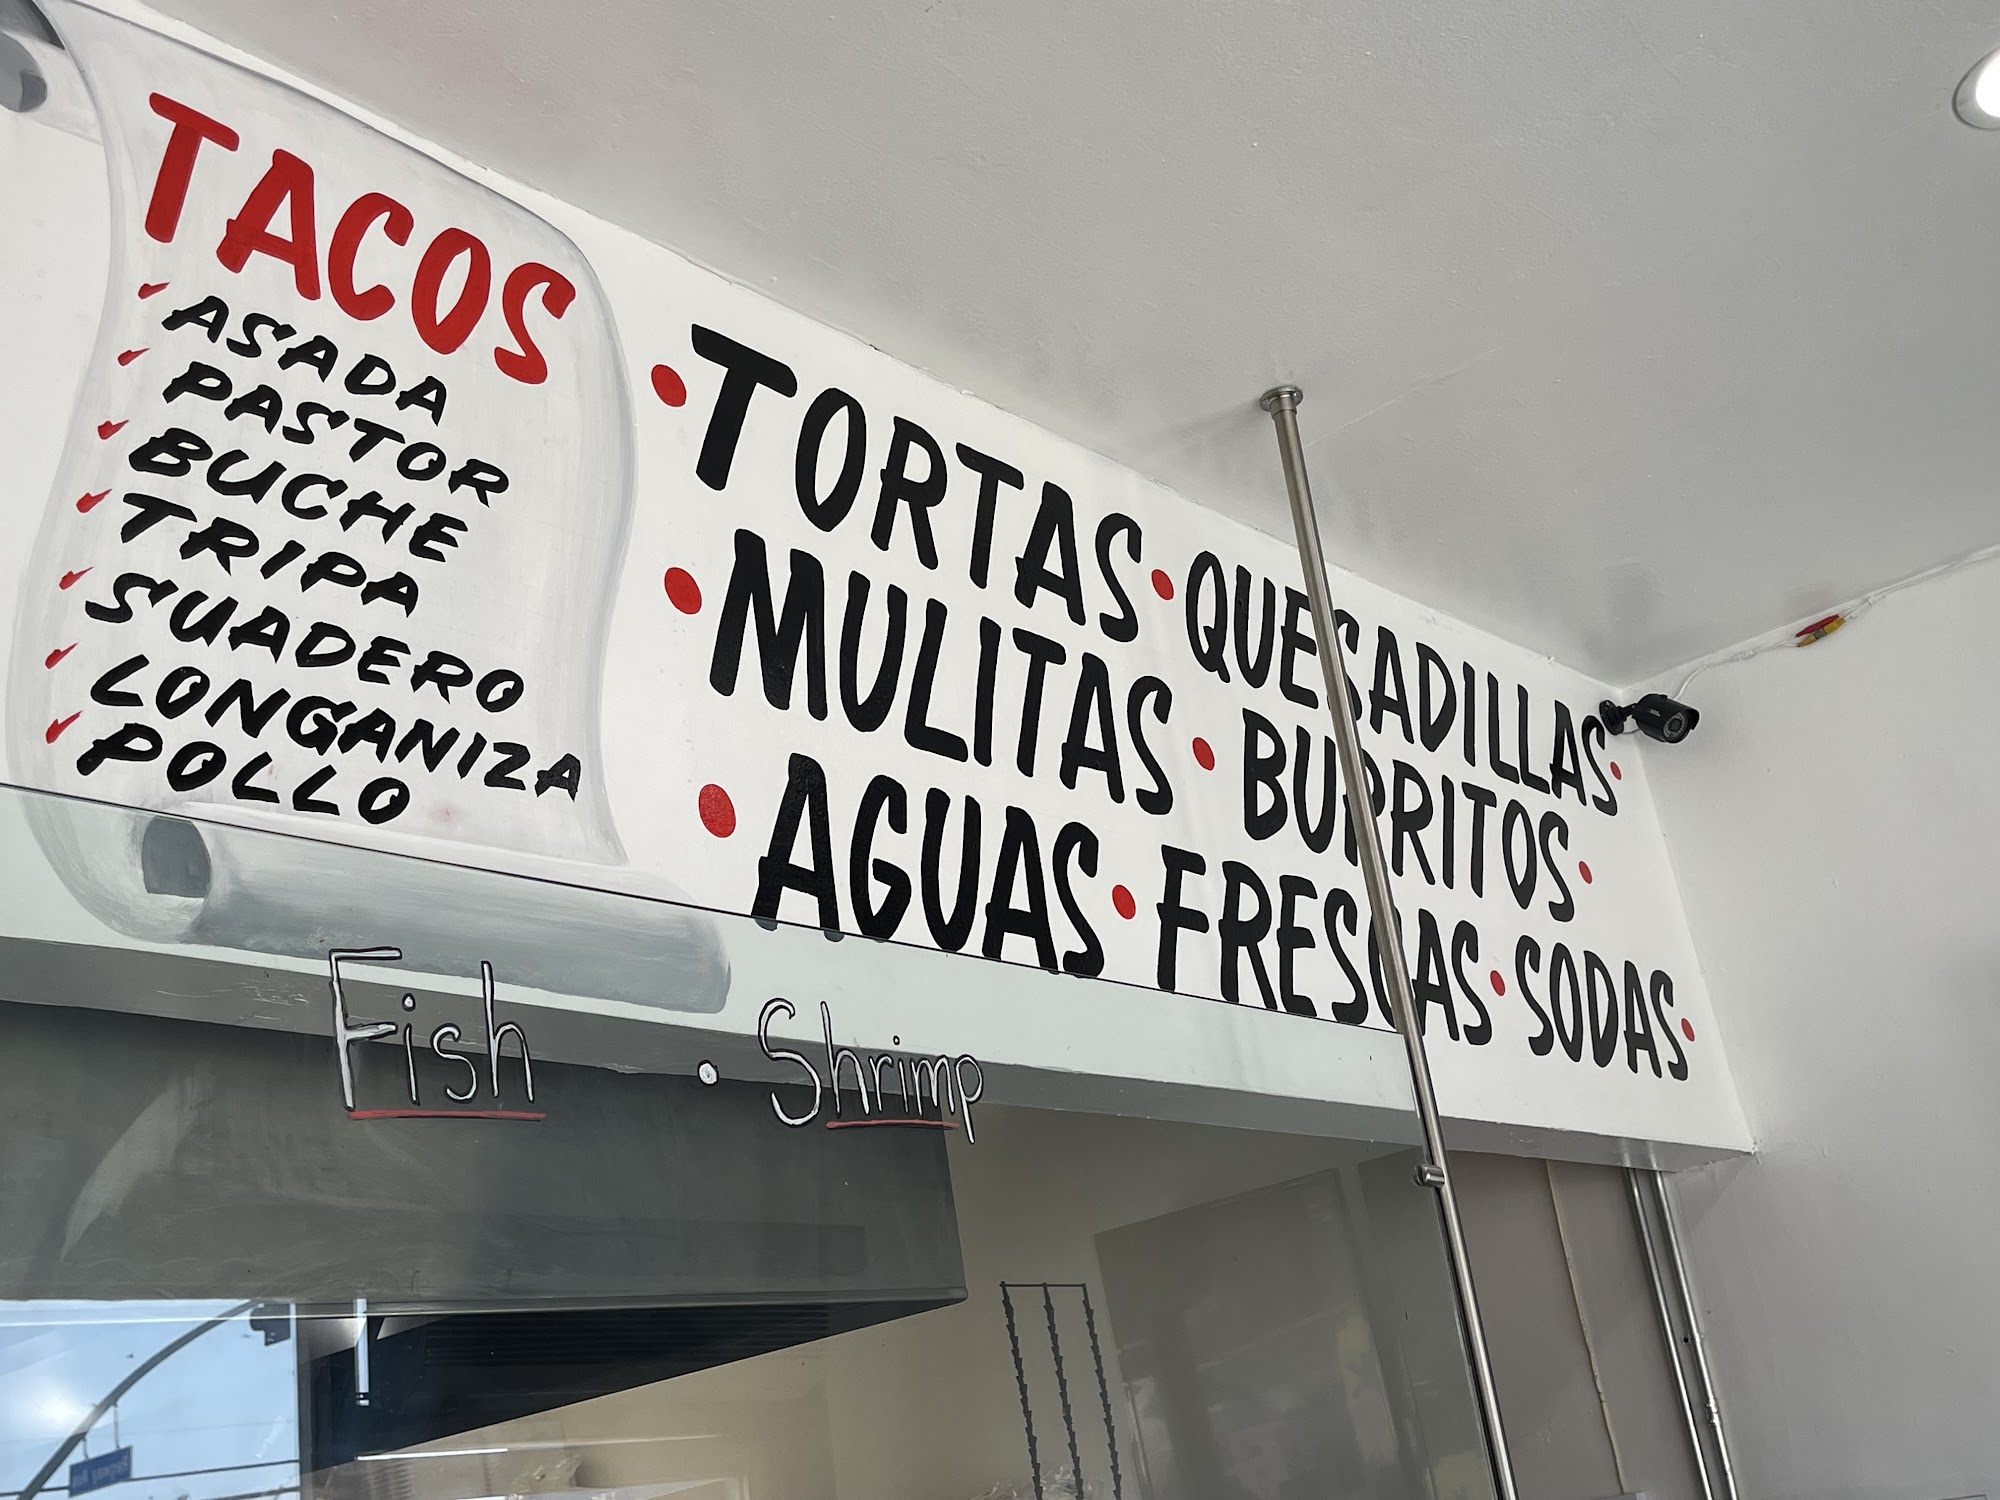 TACOS
ASADA
PASTOR
BUCHE
TRIPA
SUADERO
LONGANIZA
POLLO
• TORTAS • QUESADILLAS •
• MULITAS • BURRITOS •
• AGUAS • FRESCAS • SODAS •
Fish • Shrimp